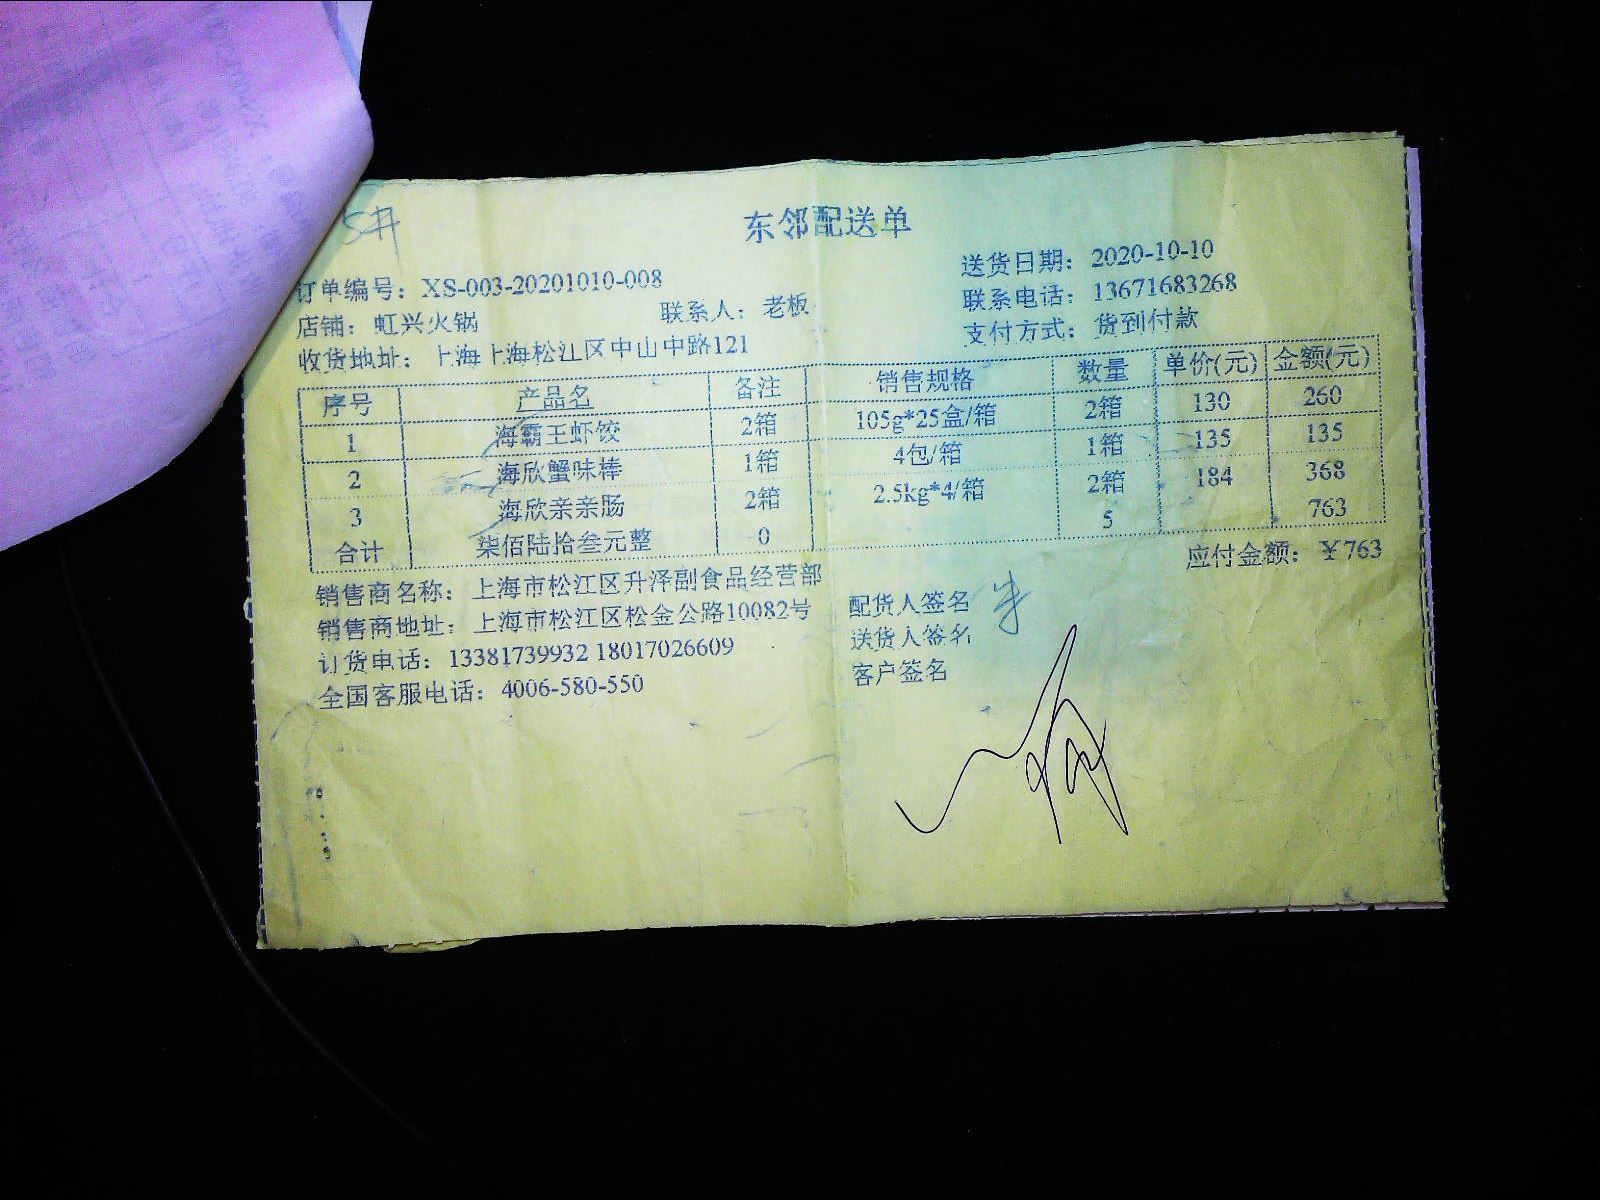 5#
东邻配送单
订单编号：XS-003-20201010-008
送货日期：2020-10-10
店铺：虹兴火锅 联系人：老板 联系电话：13671683268
收货地址：上海上海松江区中山中路121 支付方式：货到付款
序号 产品名 备注 销售规格 数量 单价(元) 金额(元)
1 海霸王虾饺 2箱 105g*25盒/箱 2箱 130 260
2 海欣蟹味棒 1箱 4包/箱 1箱 135 135
3 海欣亲亲肠 2箱 2.5kg*4/箱 2箱 184 368
合计 柒佰陆拾叁元整 0 5 763
应付金额：￥763
销售商名称：上海市松江区升泽副食品经营部
销售商地址：上海市松江区松金公路10082号
订货电话：13381739932 18017026609
全国客服电话：4006-580-550
配货人签名
送货人签名
客户签名